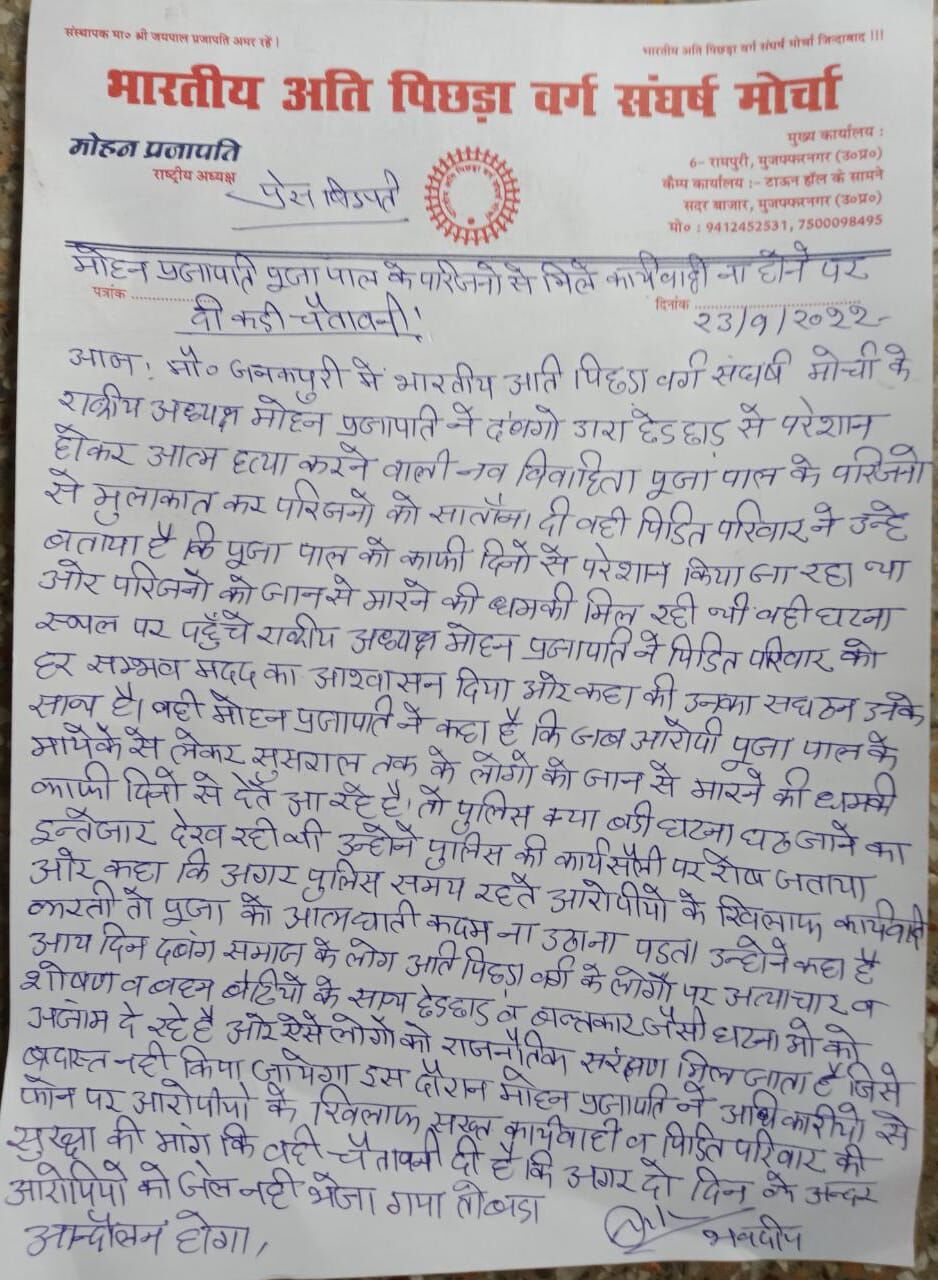 संस्थापक मा० श्री जयपाल प्रजापति अमर रहें !
भारतीय अति पिछड़ा वर्ग संघर्ष मोर्चा जिन्दाबाद !!!
भारतीय अति पिछड़ा वर्ग संघर्ष मोर्चा
मोहन प्रजापति
राष्ट्रीय अध्यक्ष
मुख्य कार्यालय :
6- रामपुरी, मुजफ्फरनगर (उ०प्र०)
कैम्प कार्यालय :- टाऊन हॉल के सामने
सदर बाजार, मुजफ्फरनगर (उ०प्र०)
मो० : 9412452531, 7500098495
प्रेस विज्ञप्ति
मोहन प्रजापति पूजा पाल के परिजनो से मिले कार्यवाही ना होने पर
पत्रांक
दिनांक
दी कड़ी चेतावनी!
23/9/2022
आज! मौ० जनकपुरी में भारतीय अति पिछड़ा वर्ग संघर्ष मोर्चा के
राष्ट्रीय अध्यक्ष मोहन प्रजापति ने दबंगो द्वारा छेडछाड़ से परेशान
होकर आत्म हत्या करने वाली नव विवाहिता पूजा पाल के परिजनो
से मुलाकात कर परिजनों को सातौना दी वही पिडित परिवार ने उन्हे
बताया है कि पूजा पाल को काफी दिनों से परेशान किया जा रहा था
ओर परिजनों को जान से मारने की धमकी मिल रही थी वही घटना
स्थल पर पहुँचे राष्ट्रीय अध्यक्ष मोहन प्रजापति ने पिडित परिवार को
हर सम्भव मदद का आश्वासन दिया ओर कहा की उनका सघठन उनके
साथ है। वही मोहन प्रजापति ने कहा है कि जब आरोपी पूजा पाल के
मायेके से लेकर सुसराल तक के लोगो को जान से मारने की धमकी
काफी दिनों से देते आ रहे है। तो पुलिस क्या बडी घटना घट जाने का
इन्तेजार देख रही थी उन्होने पुलिस की कार्यसैली पर रोष जताया
ओर कहा कि अगर पुलिस समय रहते आरोपीयो के खिलाफ कार्यवाही
करती तो पूजा को आत्मघाती कदम ना उठाना पडता। उन्होने कहा है
आय दिन दबंग समाज के लोग अति पिछडा वर्ग के लोगों पर अत्याचार व
शोषण व बहन बेटियो के साथ छेडछाड़ व बलत्कार जैसी घटनाओ को
अंजाम दे रहे है ओर ऐसे लोगों को राजनैतिक सरंक्षण मिल जाता है जिसे
ब्रदास्त नही किया जायेगा इस दौरान मोहन प्रजापति ने अधिकारीयो से
फोन पर आरोपीयो के खिलाफ सख्त कार्यवाही व पिडित परिवार की
सुरक्षा की मांग कि वही चेतावनी दी है कि अगर दो दिन के अन्दर
आरोपियो को जेल नही भेजा गया तो बडा
आन्दोलन होगा,
भवदीय